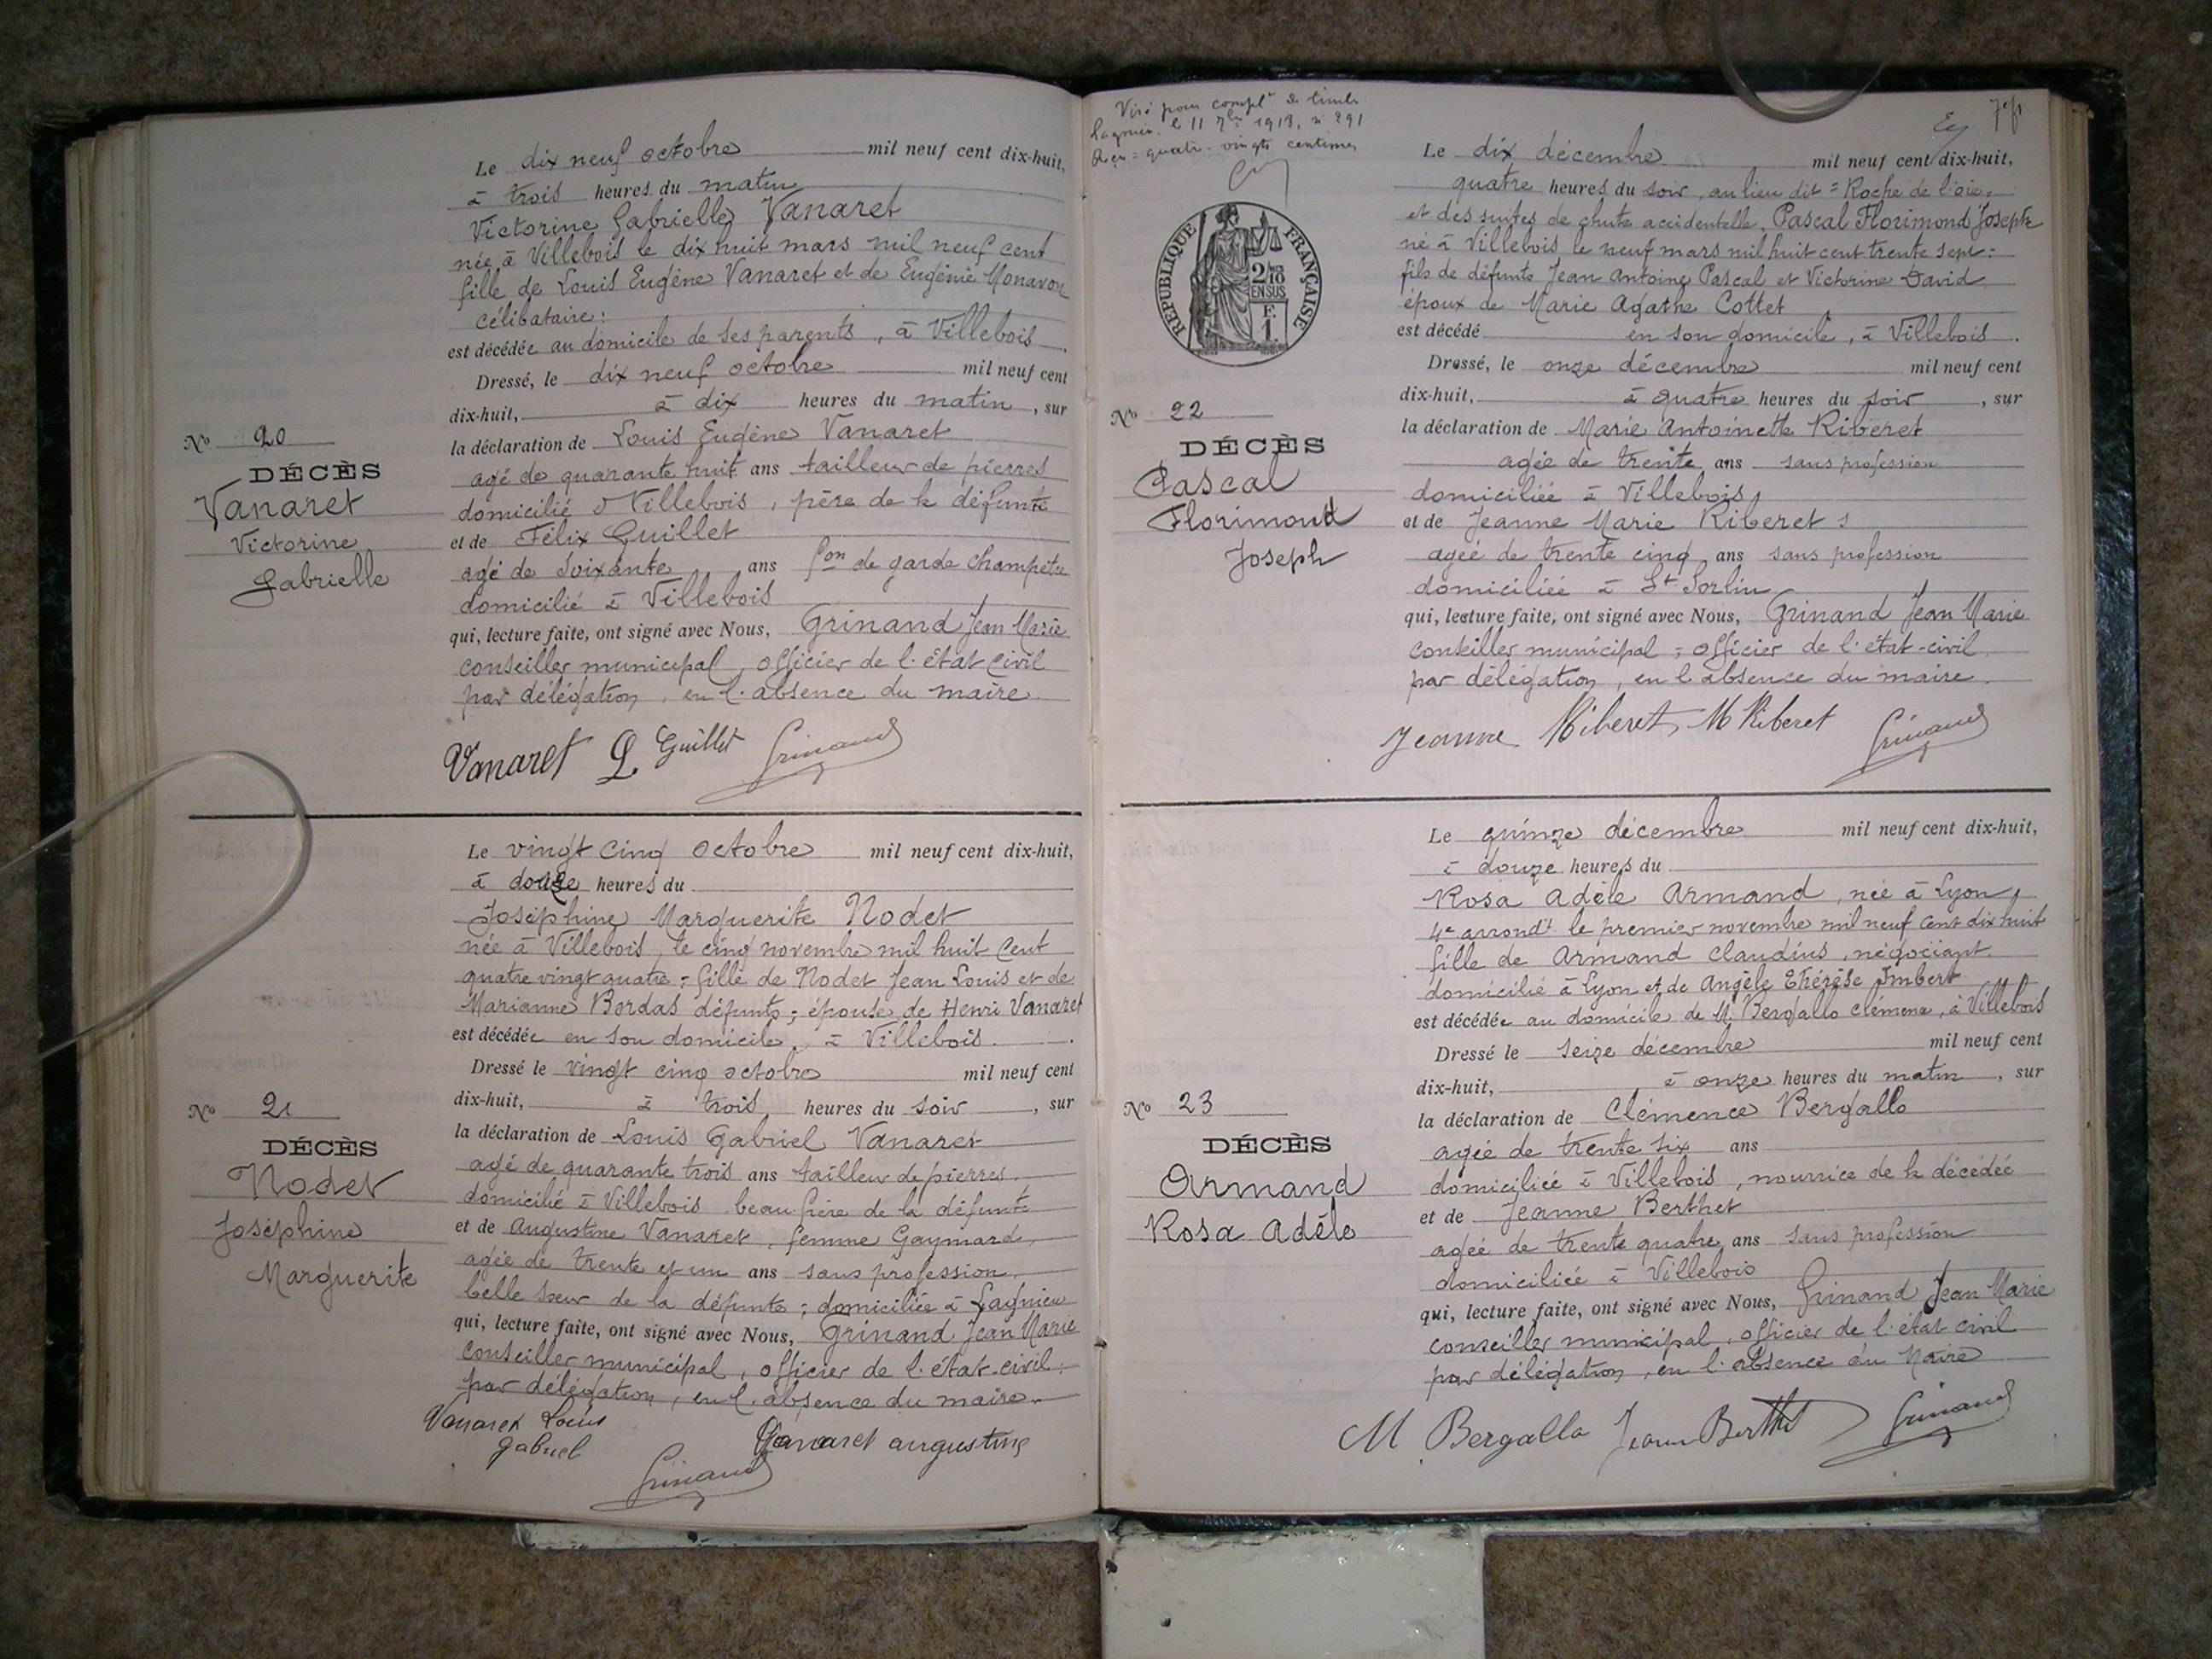 Le dix neuf octobre mil neuf cent dix-huit,
à trois heures du matin
Victorine Gabrielle Vanaret
née à Villebois le dix huit mars mil neuf cent
fille de Louis Eugène Vanaret et de Eugénie Monavon
célibataire :
est décédée au domicile de ses parents, à Villebois.
Dressé, le dix neuf octobre mil neuf cent
dix-huit, à dix heures du matin, sur
la déclaration de Louis Eugène Vanaret
agé de quarante huit ans tailleur de pierres
domicilié à Villebois, père de la défunte
et de Félix Guillet
agé de soixante ans fon de garde champêtre
domicilié à Villebois
qui, lecture faite, ont signé avec Nous, Grinand Jean Marie
conseiller municipal, officier de l'état civil
par délégation, en l'absence du maire.
Vanaret L Guillet Grinand
No 20
DÉCÈS
Vanaret
Victorine
Gabrielle
Le vingt cinq octobre mil neuf cent dix-huit,
à douze heures du
Joséphine Marguerite Nodet
née à Villebois, le cinq novembre mil huit cent
quatre vingt quatre ; fille de Nodet Jean Louis et de
Marianne Bordas défunts ; épouse de Henri Vanaret
est décédée en son domicile, à Villebois.
Dressé le vingt cinq octobre mil neuf cent
dix-huit, à trois heures du soir, sur
la déclaration de Louis Gabriel Vanaret
agé de quarante trois ans tailleur de pierres,
domicilié à Villebois beau frère de la défunte
et de Augustine Vanaret, femme Gaymard,
agée de trente et un ans sans profession,
belle sœur de la défunte ; domiciliée à Lagnieu
qui, lecture faite, ont signé avec Nous, Grinand Jean Marie
conseiller municipal, officier de l'état-civil,
par délégation, en l'absence du maire.
Vanaret Louis
gabriel
Vanaret augustine
Grinand
No 21
DÉCÈS
Nodet
Joséphine
Marguerite
Visé pour complt de timbre
Lagnieu, le 11 7bre 1918, n 291
Reçu = quatre-vingts centimes
RÉPUBLIQUE FRANÇAISE
2/10
EN SUS
F.
1.
Le dix décembre mil neuf cent dix-huit,
quatre heures du soir, au lieu dit = Roche de l'oie =
et des suites de chute accidentelle, Pascal Florimond Joseph
né à Villebois le neuf mars mil huit cent trente sept :
fils de défunts Jean Antoine Pascal et Victorine David
époux de Marie Agathe Cottet
est décédé en son domicile, à Villebois.
Dressé, le onze décembre mil neuf cent
dix-huit, à quatre heures du soir, sur
la déclaration de Marie Antoinette Riberet
agée de trente ans sans profession
domiciliée à Villebois,
et de Jeanne Marie Riberet
agée de trente cinq ans sans profession
domiciliée à St Sorlin
qui, lecture faite, ont signé avec Nous, Grinand Jean Marie
conseiller municipal, officier de l'état-civil,
par délégation, en l'absence du maire.
Jeanne Riberet, M Riberet Grinand
No 22
DÉCÈS
Pascal
Florimond
Joseph
Le quinze décembre mil neuf cent dix-huit,
à douze heures du
Rosa Adèle Armand, née à Lyon,
4e arrondt le premier novembre mil neuf cent dix huit
fille de Armand Claudius, négociant
domicilié à Lyon et de Angèle Thérèse Imbert
est décédée au domicile de M. Bergallo Clémence, à Villebois
Dressé le seize décembre mil neuf cent
dix-huit, à onze heures du matin, sur
la déclaration de Clémence Bergallo
agée de trente six ans
domiciliée à Villebois, nourrice de la décédée
et de Jeanne Berthet
agée de trente quatre ans sans profession
domiciliée à Villebois
qui, lecture faite, ont signé avec Nous, Grinand Jean Marie
conseiller municipal, officier de l'état civil
par délégation, en l'absence du Maire
M Bergallo Jeanne Berthet Grinand
No 23
DÉCÈS
Armand
Rosa Adèle